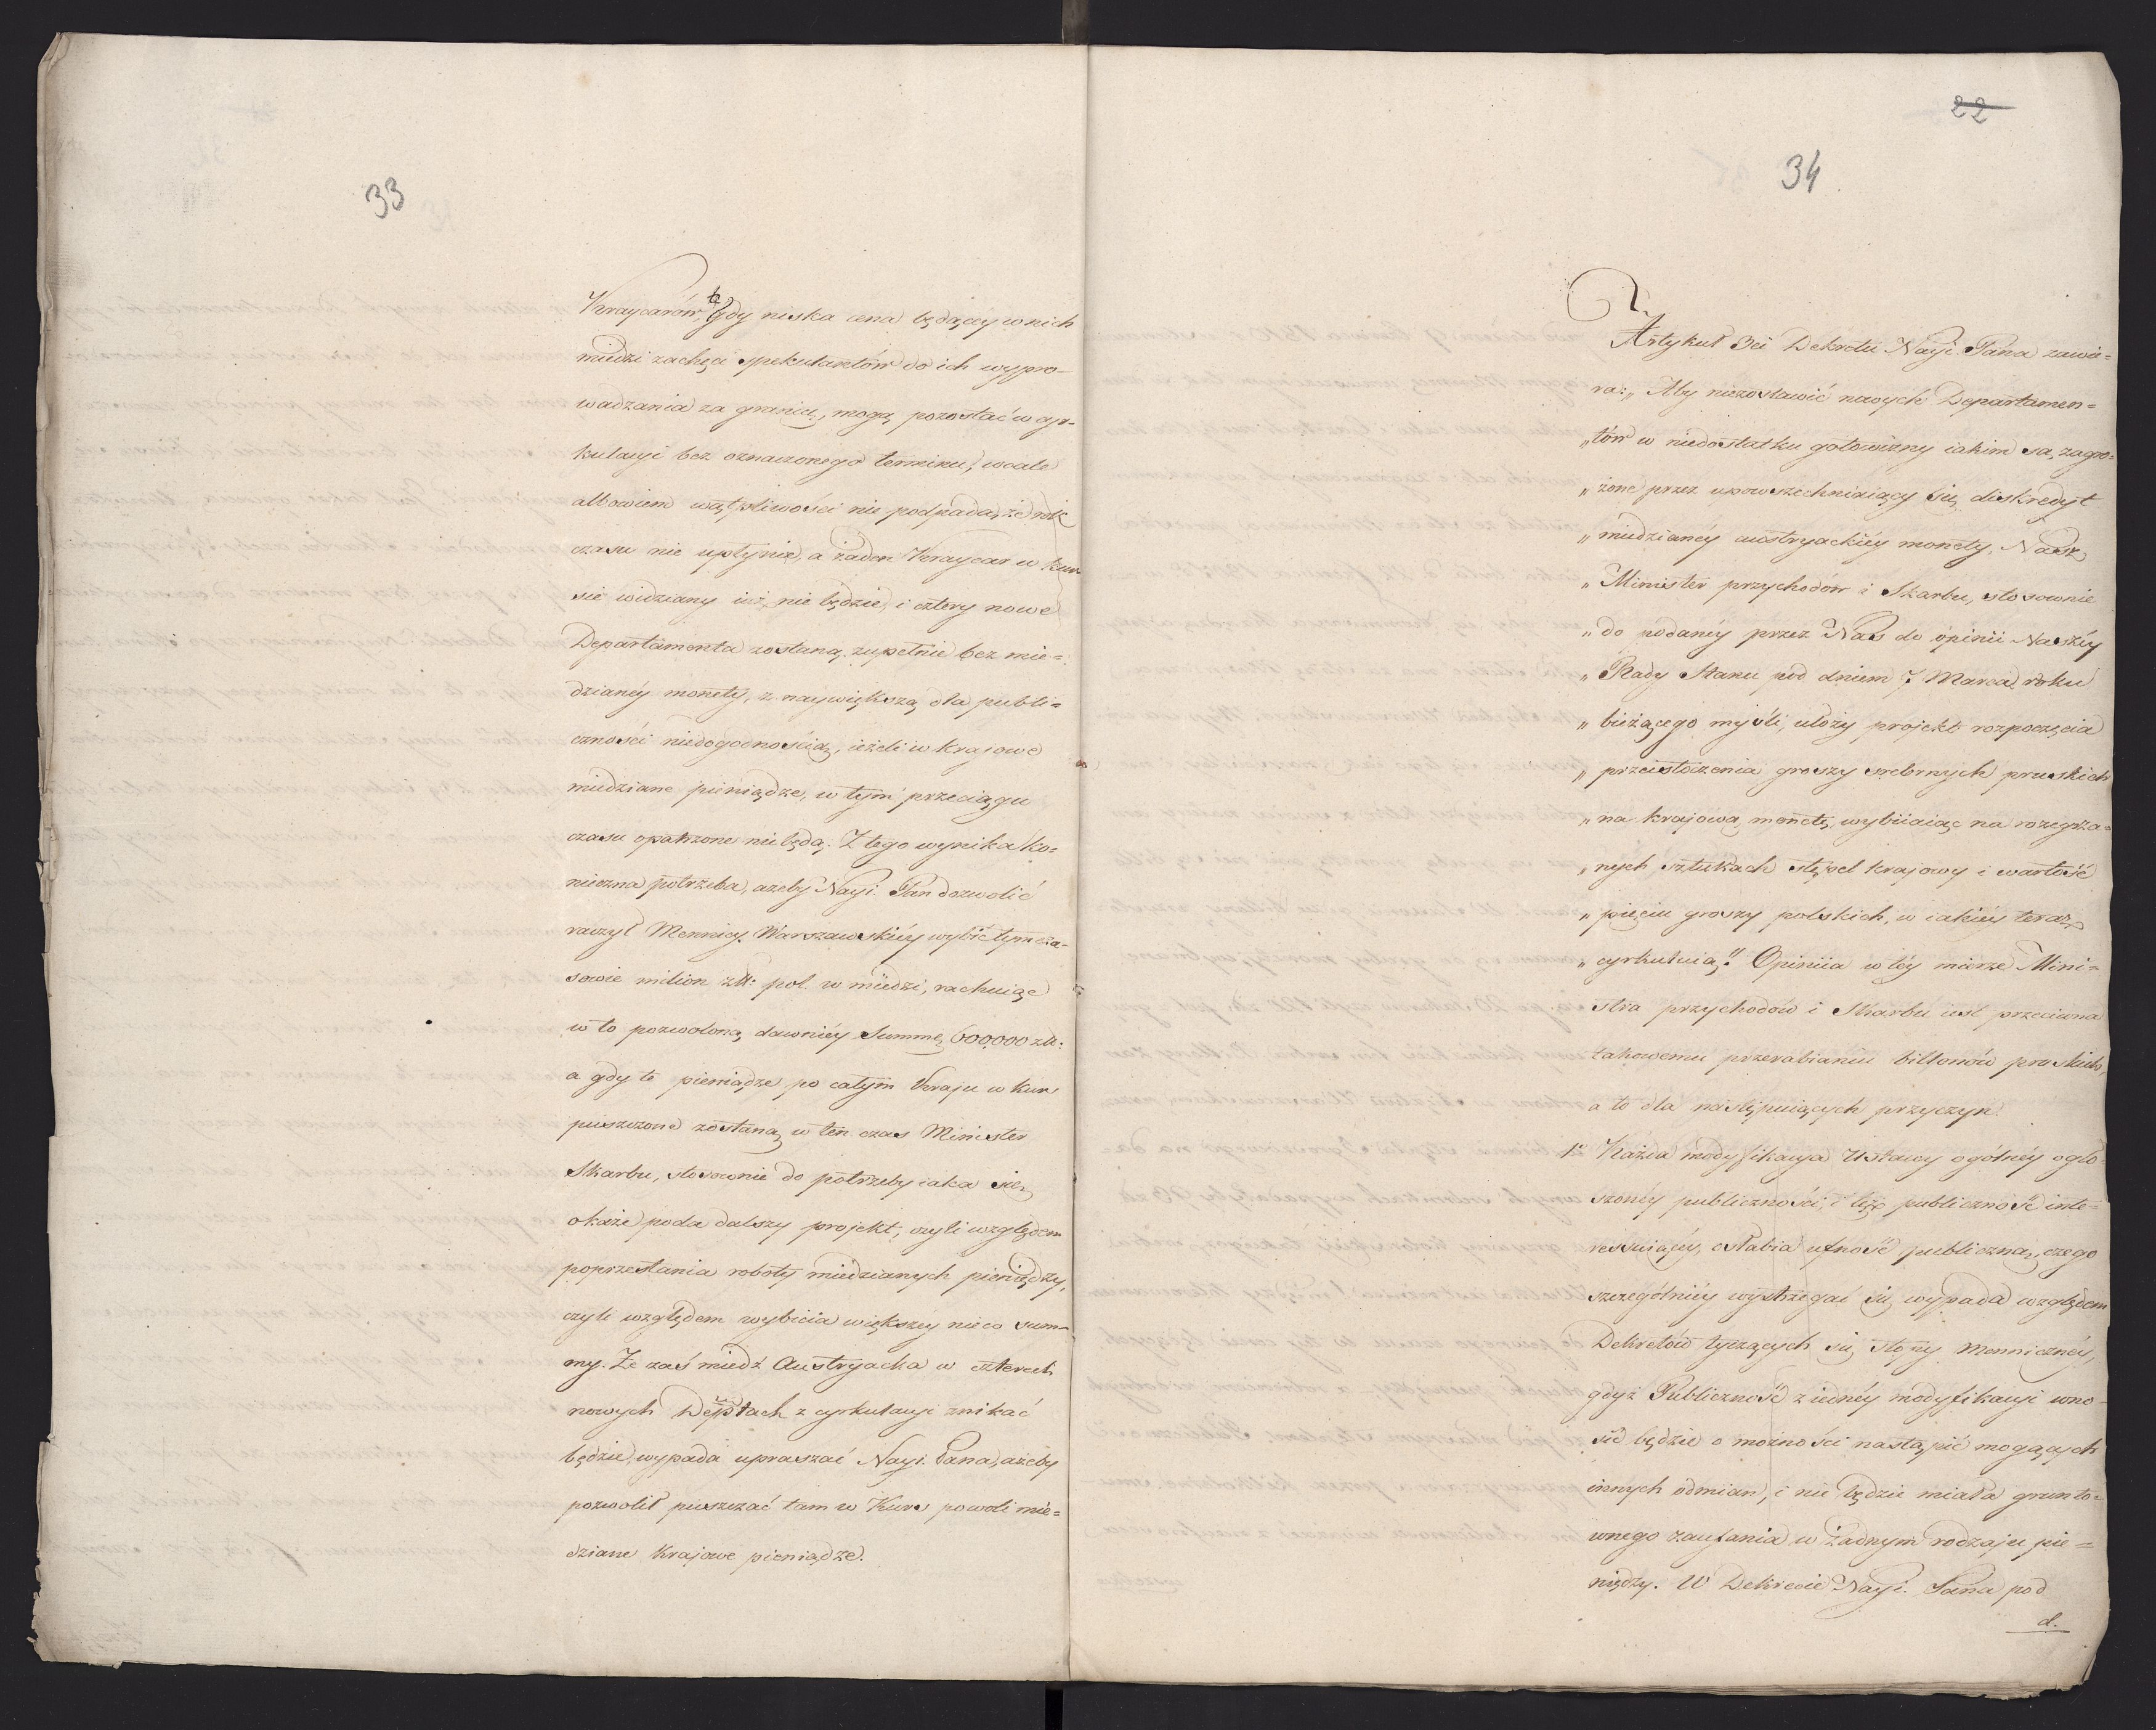 33
Kraycarów, Gdy niska cena będącey w nich
miedzi zachęci spekulantów do ich wypro-
wadzania za granicę, mogą pozostać w cyr-
kulacyi bez oznaczonego terminu, wcale
albowiem wątpliwości nie podpada, że rok
czasu nie upłynie, a żaden Kraycar w kur
sie widziany iuż nie będzie, i cztery nowe
Departamenta zostaną zupełnie bez mie=
dzianéy monety, z naywiększą dla publi=
czności niedogodnością, ieżeli w krajowe
miedziane pieniądze, w tym przeciągu
czasu opatrzone nie będą. Z tego wynika ko=
nieczna potrzeba, azeby Nayi. Pan dozwolić
raczył Mennicy Warszawskiéy wybić tymcza-
sowie milion złł: pol. w miedzi, rachuiąc
w to pozwoloną dawniéy Summę 600,000 złł:
a gdy te pieniądze po całym Kraju w kurs
puszczone zostaną, w ten czas Minister
Skarbu, stosownie do potrzeby iaka się
okaże poda dalszy projekt, czyli względem
poprzestania roboty miedzianych pieniędzy,
czyli względem wybicia większey nieco sum-
my. Że zaś miedź Austryacka w czterech
nowych Deptach z cyrkulacyi znikać
będzie, wypada upraszać Nayi. Pana, ażeby
pozwolił puszczać tam w Kurs powoli mie=
dziane Krajowe pieniądze.
22
34
Artykuł 3ci Dekretu Nayi. Pana zawie=
ra: „Aby niezostawić nowych Departamen=
„tów w niedostatku gotowizny iakim są, zagro=
„żone przez upowszechniaiący się diskredyt
„miedzianéy austryackiéy monety, Nasz
„Minister przychodów i Skarbu, stosownie
„do podanéy przez Nas do opinii Naszéy
„Rady Stanu pod dniem 7. Marca roku
„bieżącego myśli, ułoży projekt rozpoczęcia
„przeistoczenia groszy srebrnych pruskich
„na krajową monetę, wybiiaiąc na rozegrza=
„nych sztukach stępel krajowy i wartość
„pięciu groszy polskich, w iakiéy teraz
„cyrkuluią." Opiniia w téy mierze Mini=
stra przychodów i Skarbu iest przeciwna
takowemu przerabianiu billonów pruskich,
a to dla następuiących przyczyn.
1o Każda modyfikacya Ustawy ogólnéy ogło
szonéy publiczności, i też publiczność inte=
ressuiącéy, osłabia ufność publiczną, czego
szczególniéy wystrzegać się wypada względem
Dekretów tyczących się stopy Menniczney,
gdyż Publiczność z iednéy modyfikacyi wno-
sić będzie o możności nastąpić mogących
innych odmian, i nie będzie miała grunto=
wnego zaufania w żadnym rodzaju pie=
niędzy. W Dekrecie Nayi. Pana pod
d.